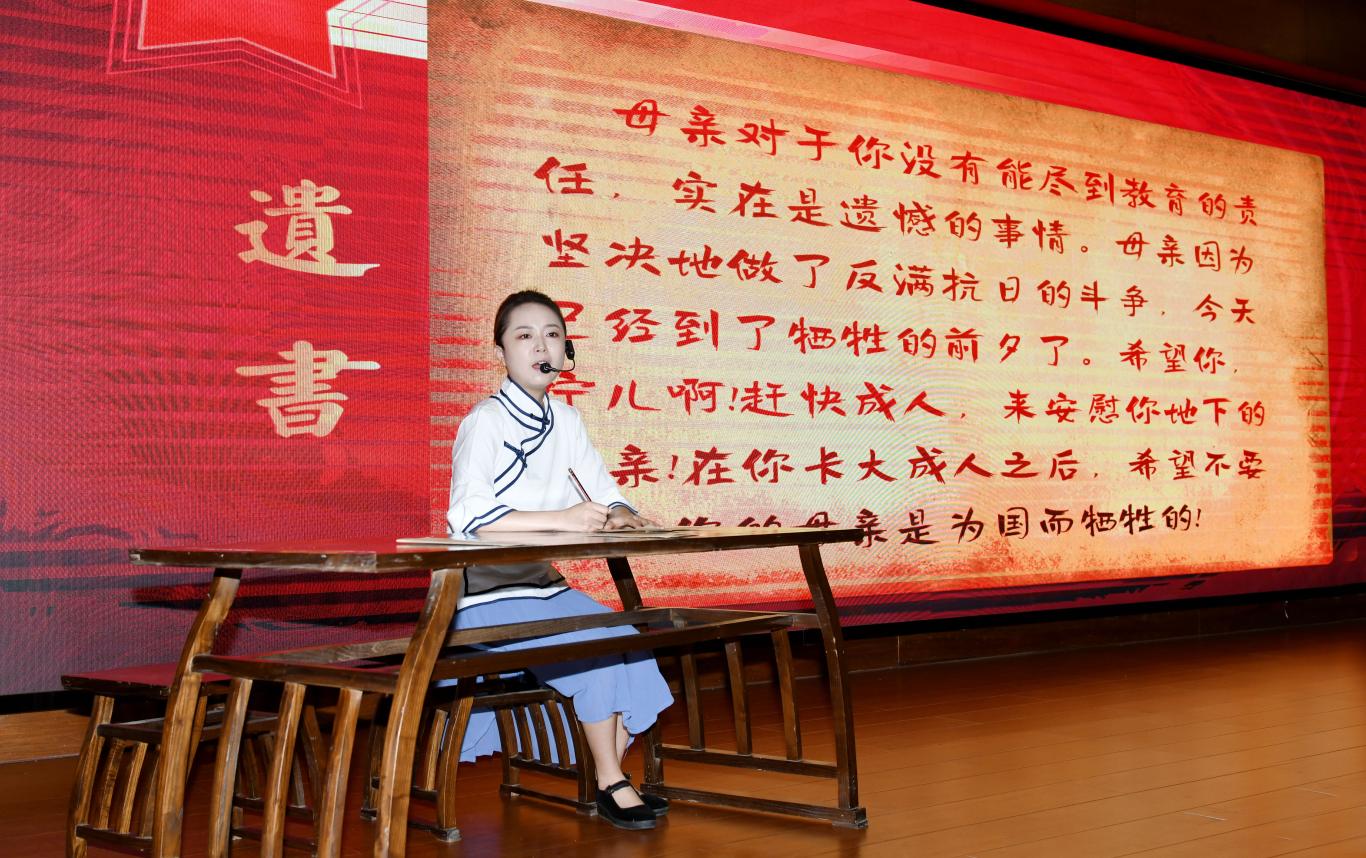 遺書
母亲对于你没有能尽到教育的责
任，实在是遗憾的事情。母亲因为
坚决地做了反满抗日的斗争，今天
已经到了牺牲的前夕了。希望你，
宁儿啊!赶快成人，来安慰你地下的
亲!在你长大成人之后，希望不要
你的母亲是为国而牺牲的!